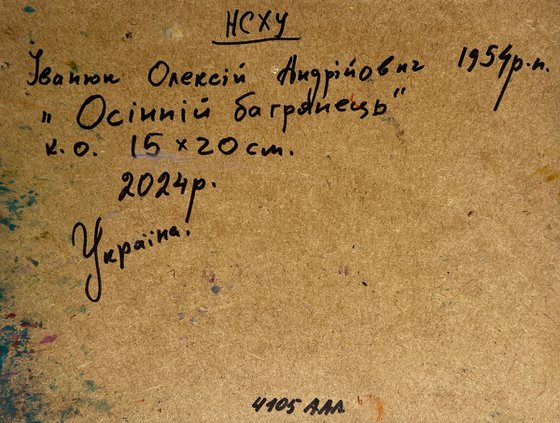 НСХУ
Іванюк Олексій Андрійович 1954р.н.
"Осінній багрянець"
к.о. 15×20см.
2024р.
Україна.
4105 АЛЛ